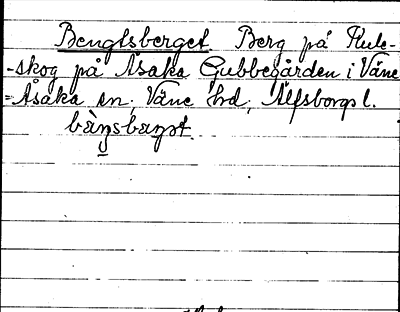 Bengtsberget. Berg på Rule-
-skog på Åsaka Gubbegården i Väne
=Åsaka sn. Väne hd, Älfsborgs l.
bàŋsbaŋt.